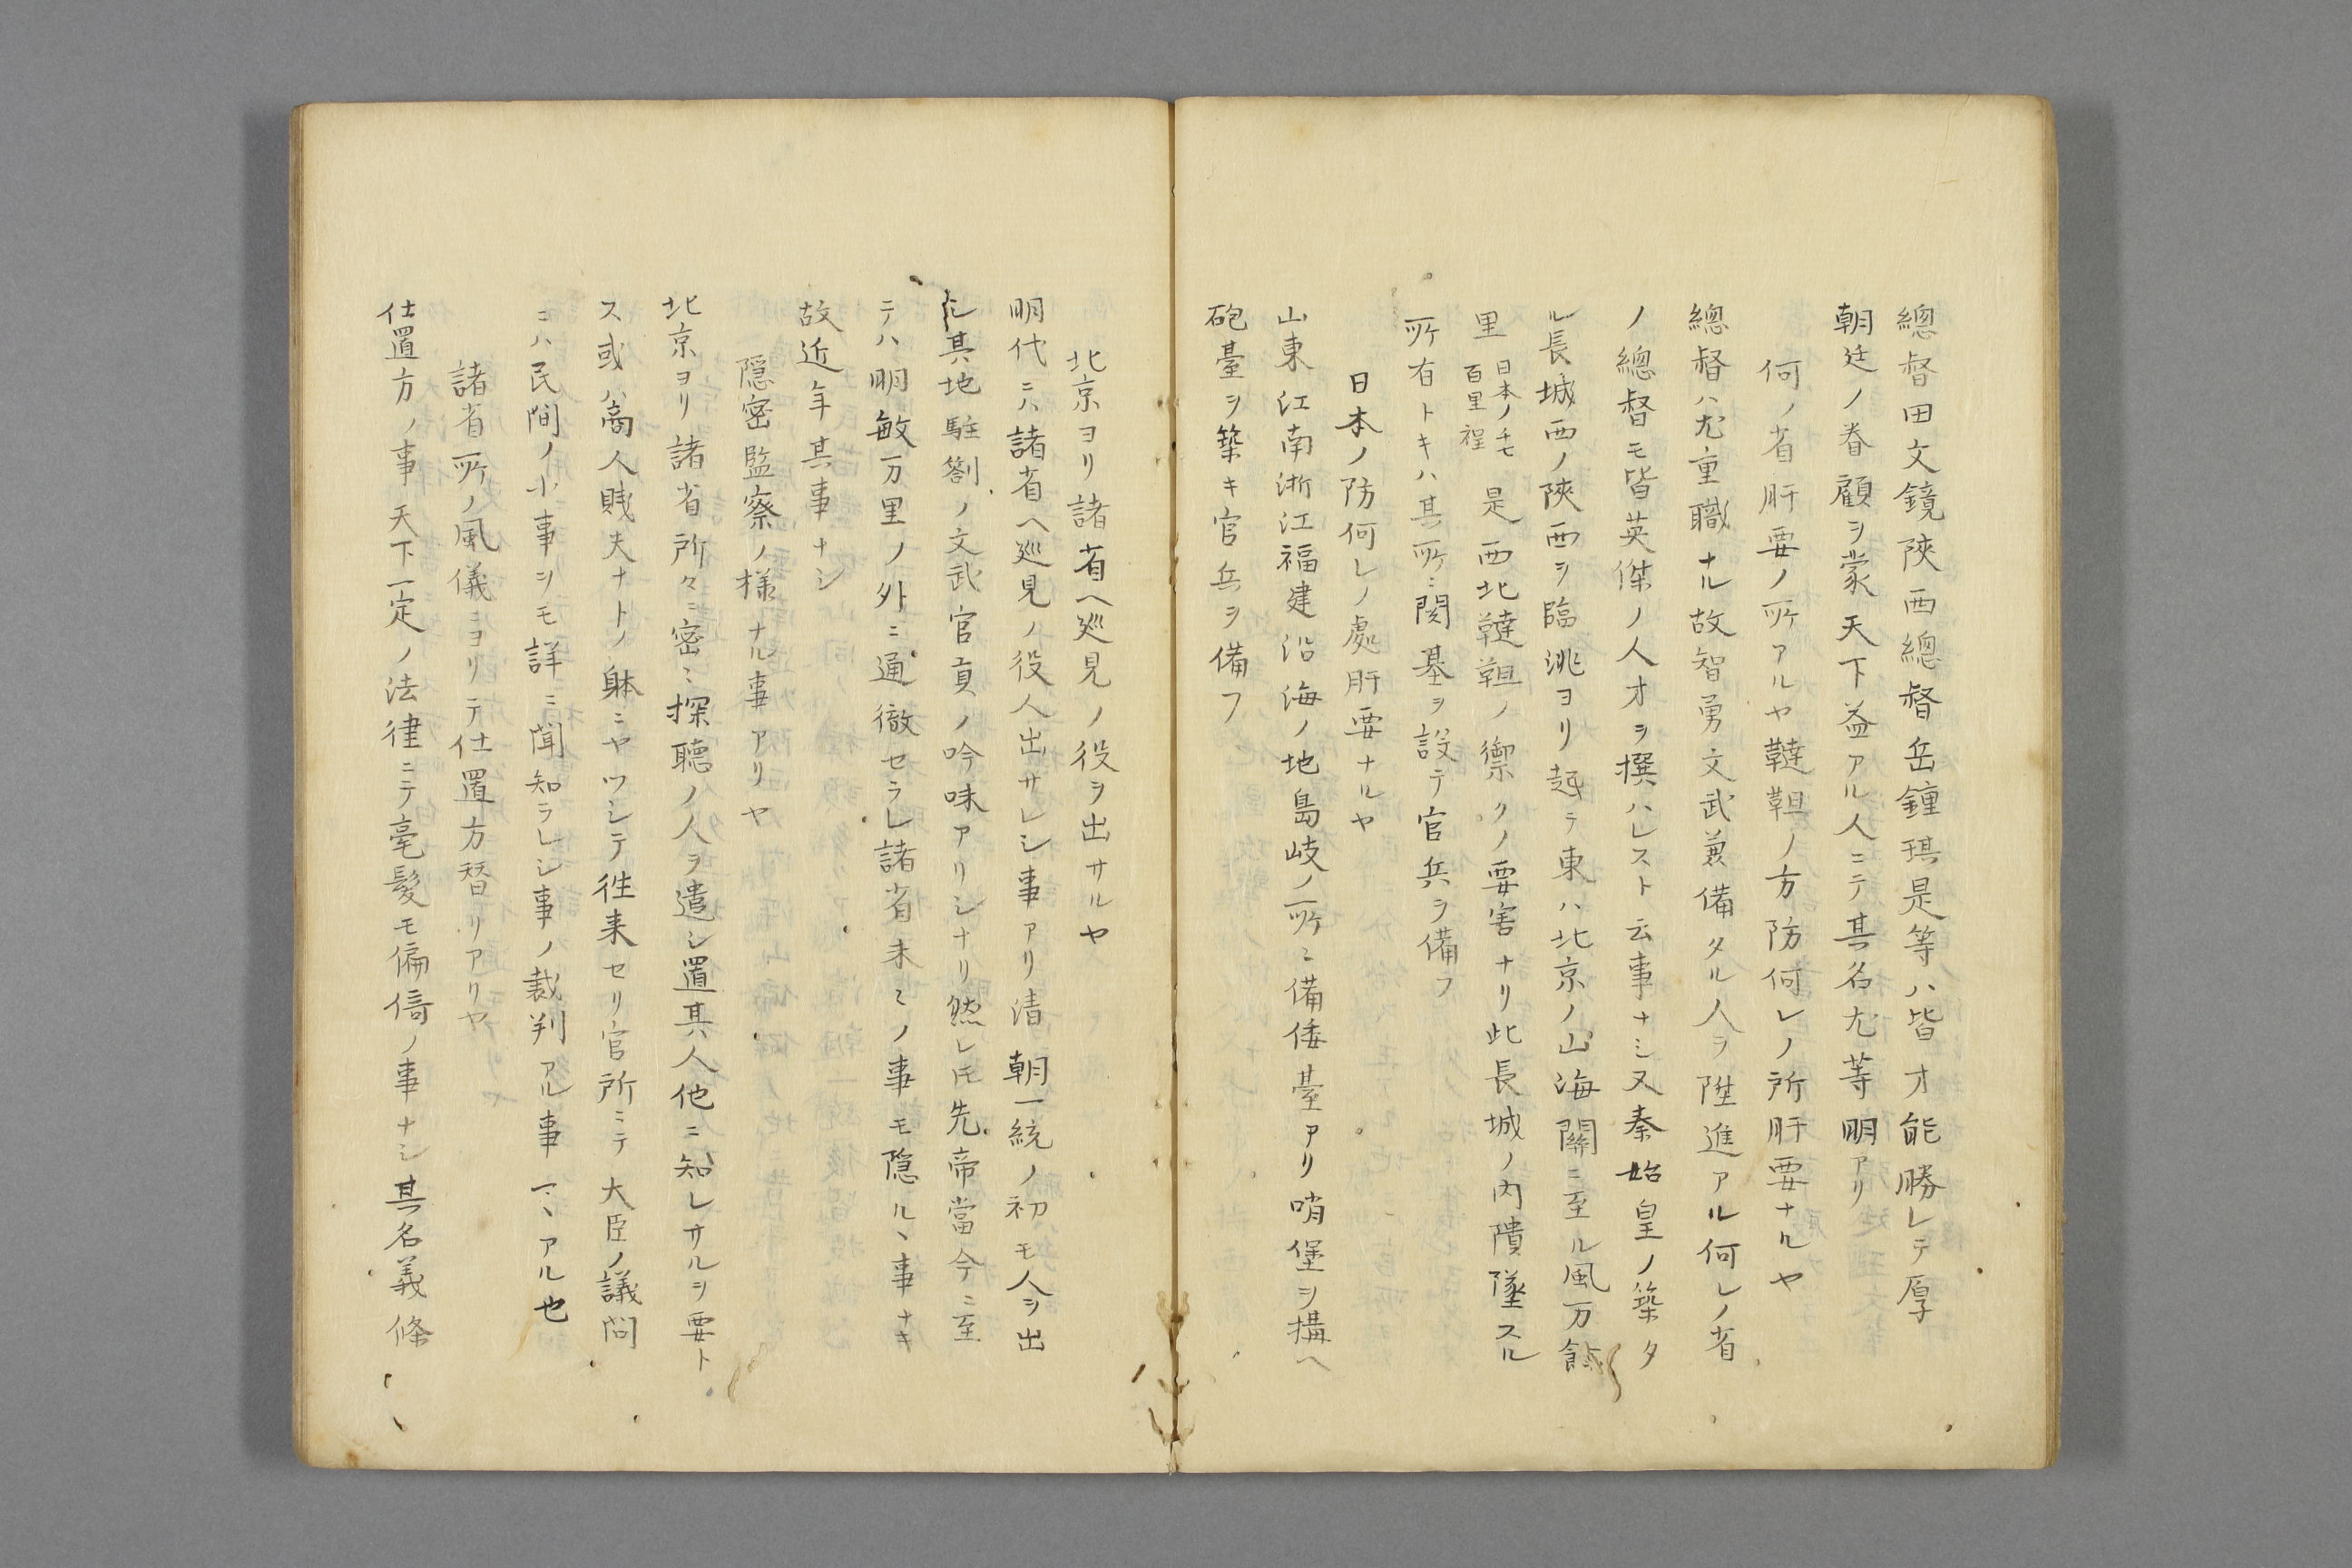 總督田文鏡陝西總督岳鐘琪是等ハ皆才能勝レテ厚
朝廷ノ眷顧ヲ蒙天下益アル人ニテ其名尤等明アリ
何ノ省肝要ノ所アルヤ韃靼ノ方防何レノ所肝要ナルヤ
總督ハ尤重職ナル故智勇文武兼備タル人ヲ陞進アル何レノ省
ノ總督モ皆英傑ノ人才ヲ撰ハレスト云事ナシ又秦始皇ノ築タ
ル長城西ノ陝西ヲ臨洮ヨリ起テ東ハ北京ノ山海關ニ至ル風万餘
里 日本ノ千七百里程 是西北韃靼ノ禦クノ要害ナリ此長城ノ内隤墜スル
所有トキハ其所ニ関基ヲ設テ官兵ヲ備フ
日本ノ防何レノ處肝要ナルヤ
山東江南浙江福建沿海ノ地島岐ノ所ニ備倭臺アリ哨堡ヲ搆ヘ
砲臺ヲ築キ官兵ヲ備フ
北京ヨリ諸省ヘ巡見ノ役ヲ出サルヤ
明代ニハ諸省ヘ巡見ノ役人出サレシ事アリ清朝一統ノ初モ人ヲ出
シ其地駐劄ノ文武官員ノ吟味アリシナリ然レ𪜈先帝當今ニ至
テハ明敏万里ノ外ニ通徹セラレ諸省末々ノ事モ隠ルヽ事ナキ
故近年其事ナシ
隠密監察ノ様ナル事アリヤ
北京ヨリ諸省所々ニ密ニ探聴ノ人ヲ遣シ置其人他ニ知レサルヲ要ト
ス或ハ商人賎夫ナトノ躰ニヤツシテ徃来セリ官所ニテ大臣ノ議問
ニハ民間ノ小事ヲモ詳ニ聞知ラレシ事ノ裁判アル事マヽアル也
諸省所ノ風儀ニヨリテ仕置方替リアリヤ
仕置方ノ事天下一定ノ法律ニテ毫髪モ偏倚ノ事ナシ其名義條